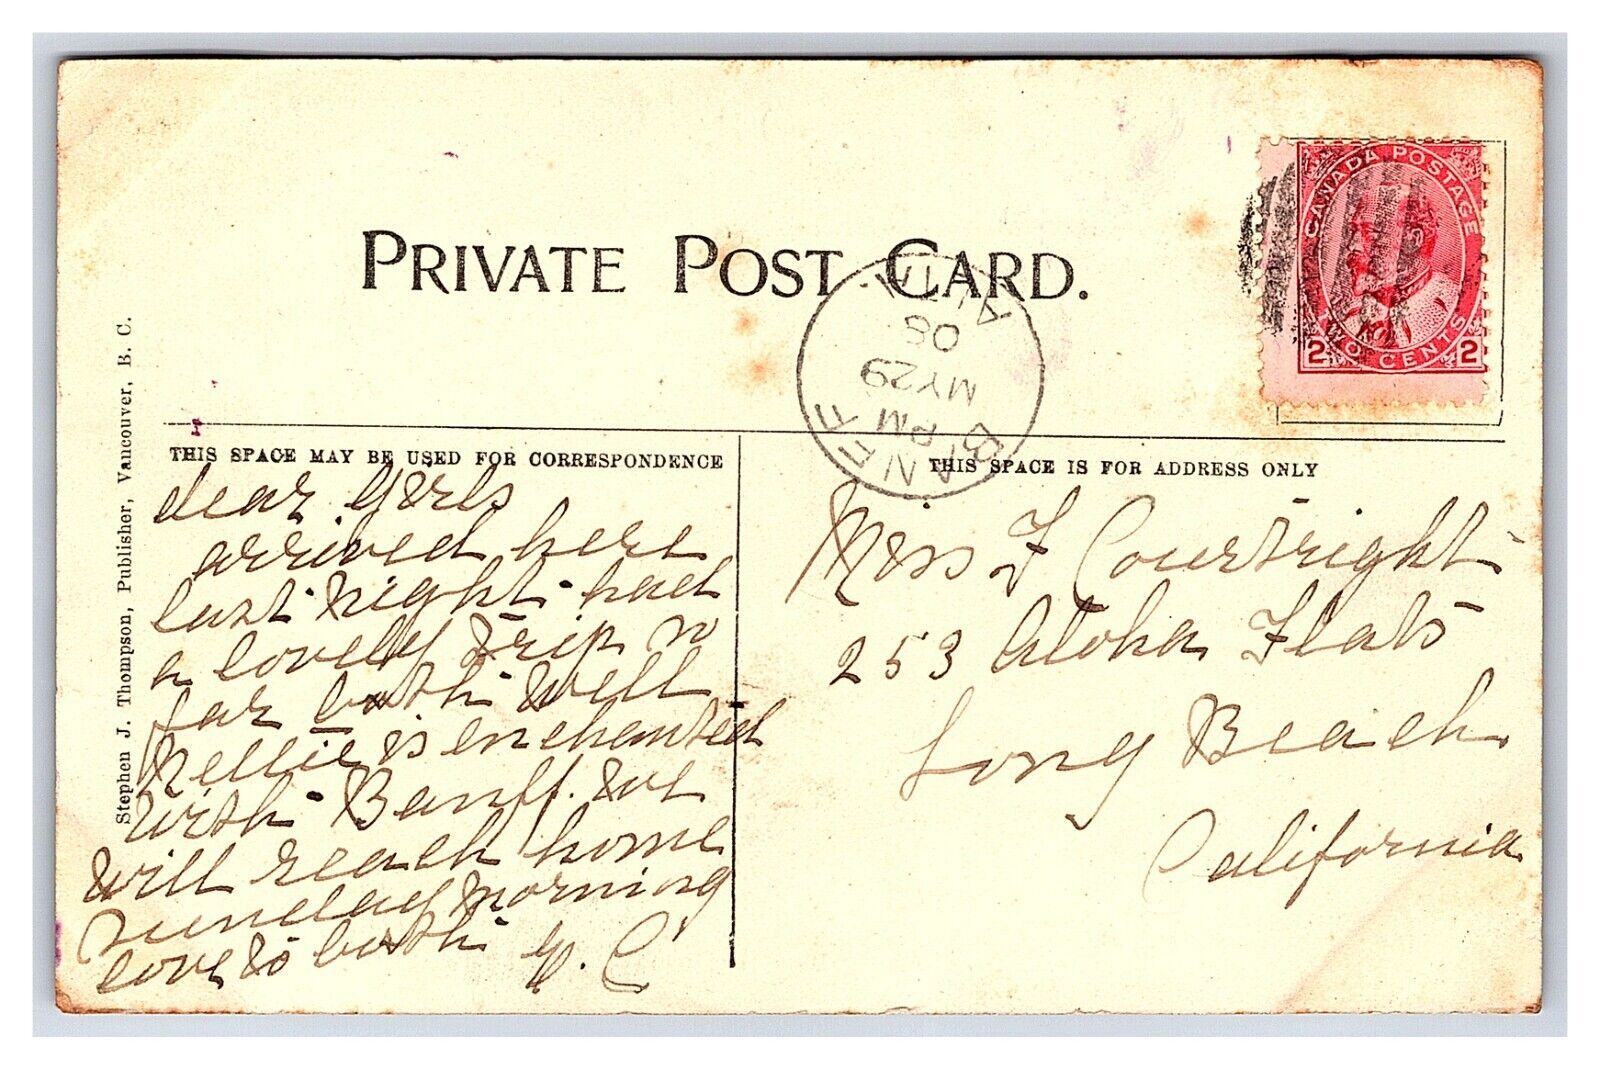 PRIVATE POST CARD.
CANADA POSTAGE
2 TWO CENTS 2
BANFF
PM
MY 29
08
ALTA
Stephen J. Thompson, Publisher, Vancouver, B. C.
THIS SPACE MAY BE USED FOR CORRESPONDENCE
dear Girls
arrived here
last night had
a lovely trip so
far both well
Nellie is enchanted
with Banff. we
will reach home
Sunday morning
love to both
C
THIS SPACE IS FOR ADDRESS ONLY
Miss F Courtright
253 Aloha Flats
Long Beach
California